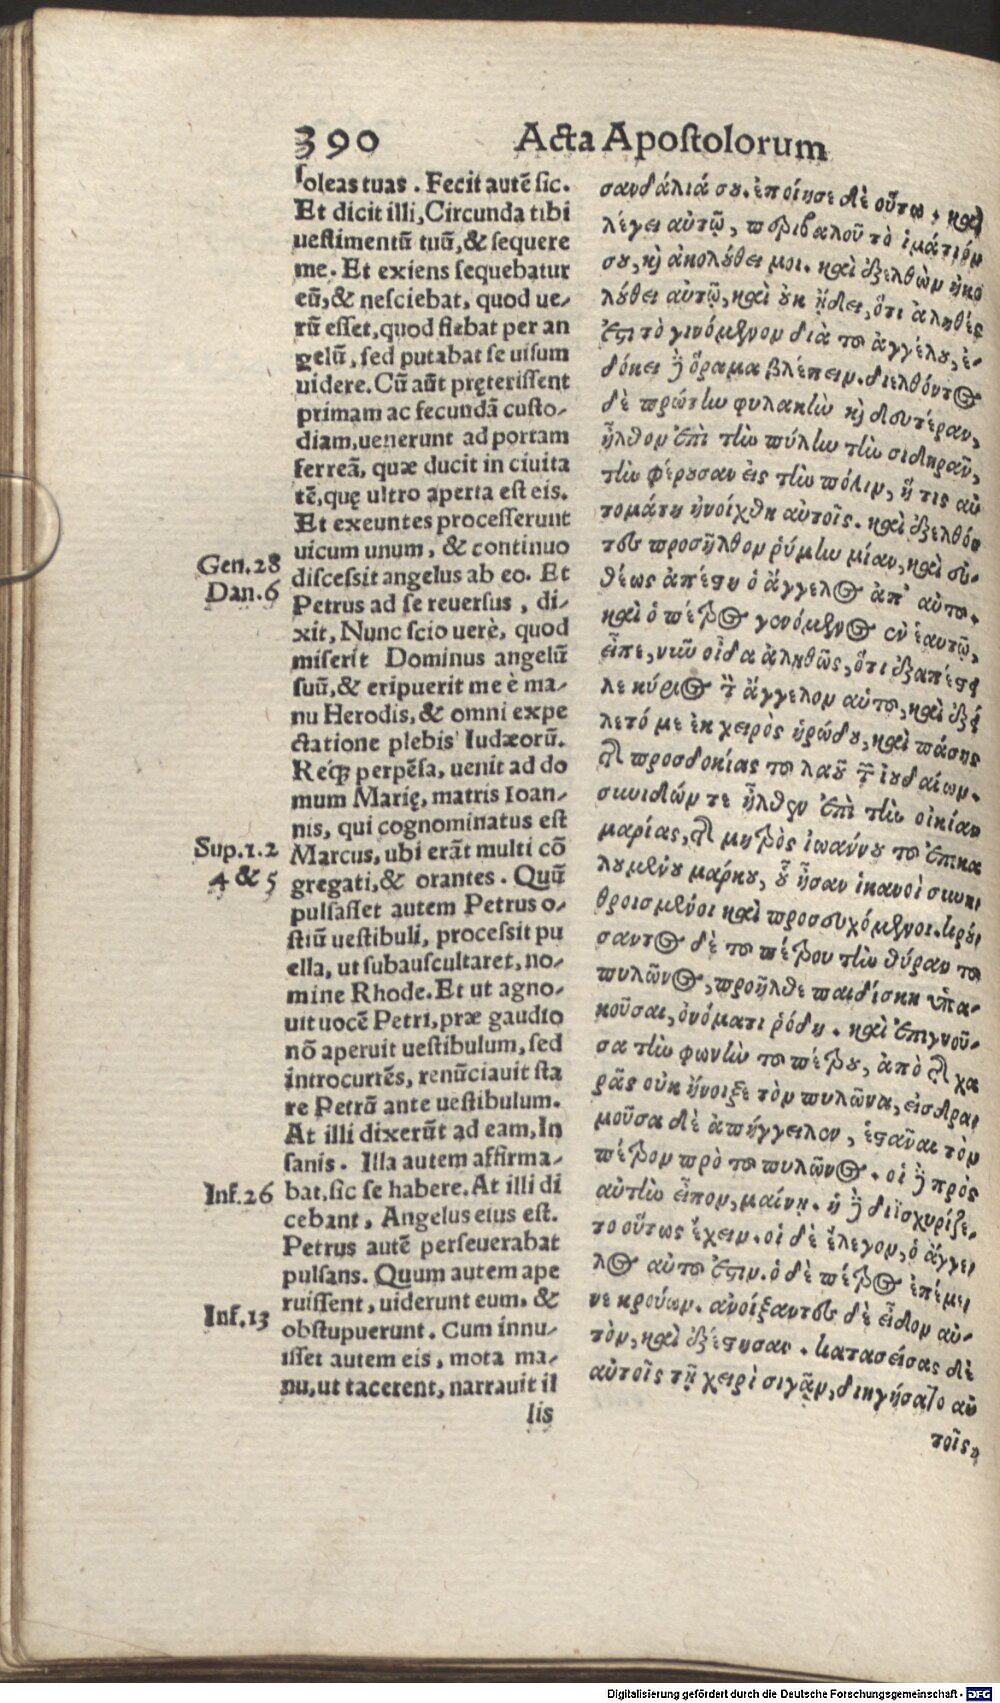 390 Acta Apostolorum
soleas tuas. Fecit autẽ sic.
Et dicit illi, Circunda tibi
uestimentũ tuũ, & sequere
me. Et exiens sequebatur
eũ, & nesciebat, quod ue-
rũ esset, quod fiebat per an
gelũ, sed putabat se uisum
uidere. Cũ aũt pręterissent
primam ac secundã custo-
diam, uenerunt ad portam
ferreã, quæ ducit in ciuita
tẽ, quę ultro aperta est eis.
Et exeuntes processerunt
uicum unum, & continuo
discessit angelus ab eo. Et
Petrus ad se reuersus, di-
xit, Nunc scio uerè, quod
miserit Dominus angelũ
suũ, & eripuerit me è ma-
nu Herodis, & omni expe
ctatione plebis Iudæorũ.
Reíq; perpẽsa, uenit ad do
mum Marię, matris Ioan-
nis, qui cognominatus est
Marcus, ubi erãt multi cõ
gregati, & orantes. Quũ
pulsasset autem Petrus o-
stiũ uestibuli, processit pu
ella, ut subauscultaret, no-
mine Rhode. Et ut agno-
uit uocẽ Petri, præ gaudio
nõ aperuit uestibulum, sed
introcurrẽs, renũciauit sta
re Petrũ ante uestibulum.
At illi dixerũt ad eam, In
sanis. Illa autem affirma-
bat, sic se habere. At illi di
cebant, Angelus eius est.
Petrus autẽ perseuerabat
pulsans. Quum autem ape
ruissent, uiderunt eum, &
obstupuerunt. Cum innu-
isset autem eis, mota ma-
nu, ut tacerent, narrauit il
lis
Gen. 28
Dan. 6
Sup. 1. 2
4 & 5
Inf. 26
Inf. 13
σανδάλιά σου. ἐποίησε δὲ οὕτω. καὶ
λέγει αὐτῷ, περιβαλοῦ τὸ ἱμάτιόν
σου, καὶ ἀκολούθει μοι. καὶ ἐξελθὼν ἠκο
λούθει αὐτῷ, καὶ οὐκ ᾔδει, ὅτι ἀληθές
ἐστι τὸ γινόμενον διὰ τοῦ ἀγγέλου, ἐ-
δόκει δὲ ὅραμα βλέπειν. διελθόντες
δὲ πρώτην φυλακὴν καὶ δευτέραν,
ἦλθον ἐπὶ τὴν πύλην τὴν σιδηρᾶν,
τὴν φέρουσαν εἰς τὴν πόλιν, ἥ τις αὐ
τομάτη ἠνοίχθη αὐτοῖς. καὶ ἐξελθόν
τες προσῆλθον ῥύμην μίαν, καὶ εὐ-
θέως ἀπέστη ὁ ἄγγελος ἀπ' αὐτοῦ.
καὶ ὁ πέτρος γενόμενος ἐν ἑαυτῷ,
εἶπε, νῦν οἶδα ἀληθῶς, ὅτι ἐξαπέστει
λε κύριος τὸν ἄγγελον αὐτοῦ, καὶ ἐξεί
λετό με ἐκ χειρὸς ἡρώδου, καὶ πάσης
τῆς προσδοκίας τοῦ λαοῦ τῶν ἰουδαίων.
συνιδών τε ἦλθεν ἐπὶ τὴν οἰκίαν
μαρίας, τῆς μητρὸς ἰωάννου τοῦ ἐπικα
λουμένου μάρκου, οὗ ἦσαν ἱκανοὶ συνη
θροισμένοι καὶ προσευχόμενοι. κρού-
σαντος δὲ τοῦ πέτρου τὴν θύραν τοῦ
πυλῶνος, προῆλθε παιδίσκη ὑπα-
κοῦσαι, ὀνόματι ῥόδη. καὶ ἐπιγνοῦ-
σα τὴν φωνὴν τοῦ πέτρου, ἀπὸ τῆς χα
ρᾶς οὐκ ἤνοιξε τὸν πυλῶνα, εἰσδρα-
μοῦσα δὲ ἀπήγγειλεν, ἑστᾶναι τὸν
πέτρον πρὸ τοῦ πυλῶνος. οἱ δὲ πρὸς
αὐτὴν εἶπον, μαίνῃ. ἡ δὲ διϊσχυρίζε-
το οὕτως ἔχειν. οἱ δὲ ἔλεγον, ὁ ἄγγε-
λος αὐτοῦ ἐστιν. ὁ δὲ πέτρος ἐπέμε-
νε κρούων. ἀνοίξαντες δὲ εἶδον αὐ-
τὸν, καὶ ἐξέστησαν. κατασείσας δὲ
αὐτοῖς τῇ χειρὶ σιγᾶν, διηγήσατο αὐ
τοῖς,
Digitalisierung gefördert durch die Deutsche Forschungsgemeinschaft - DFG